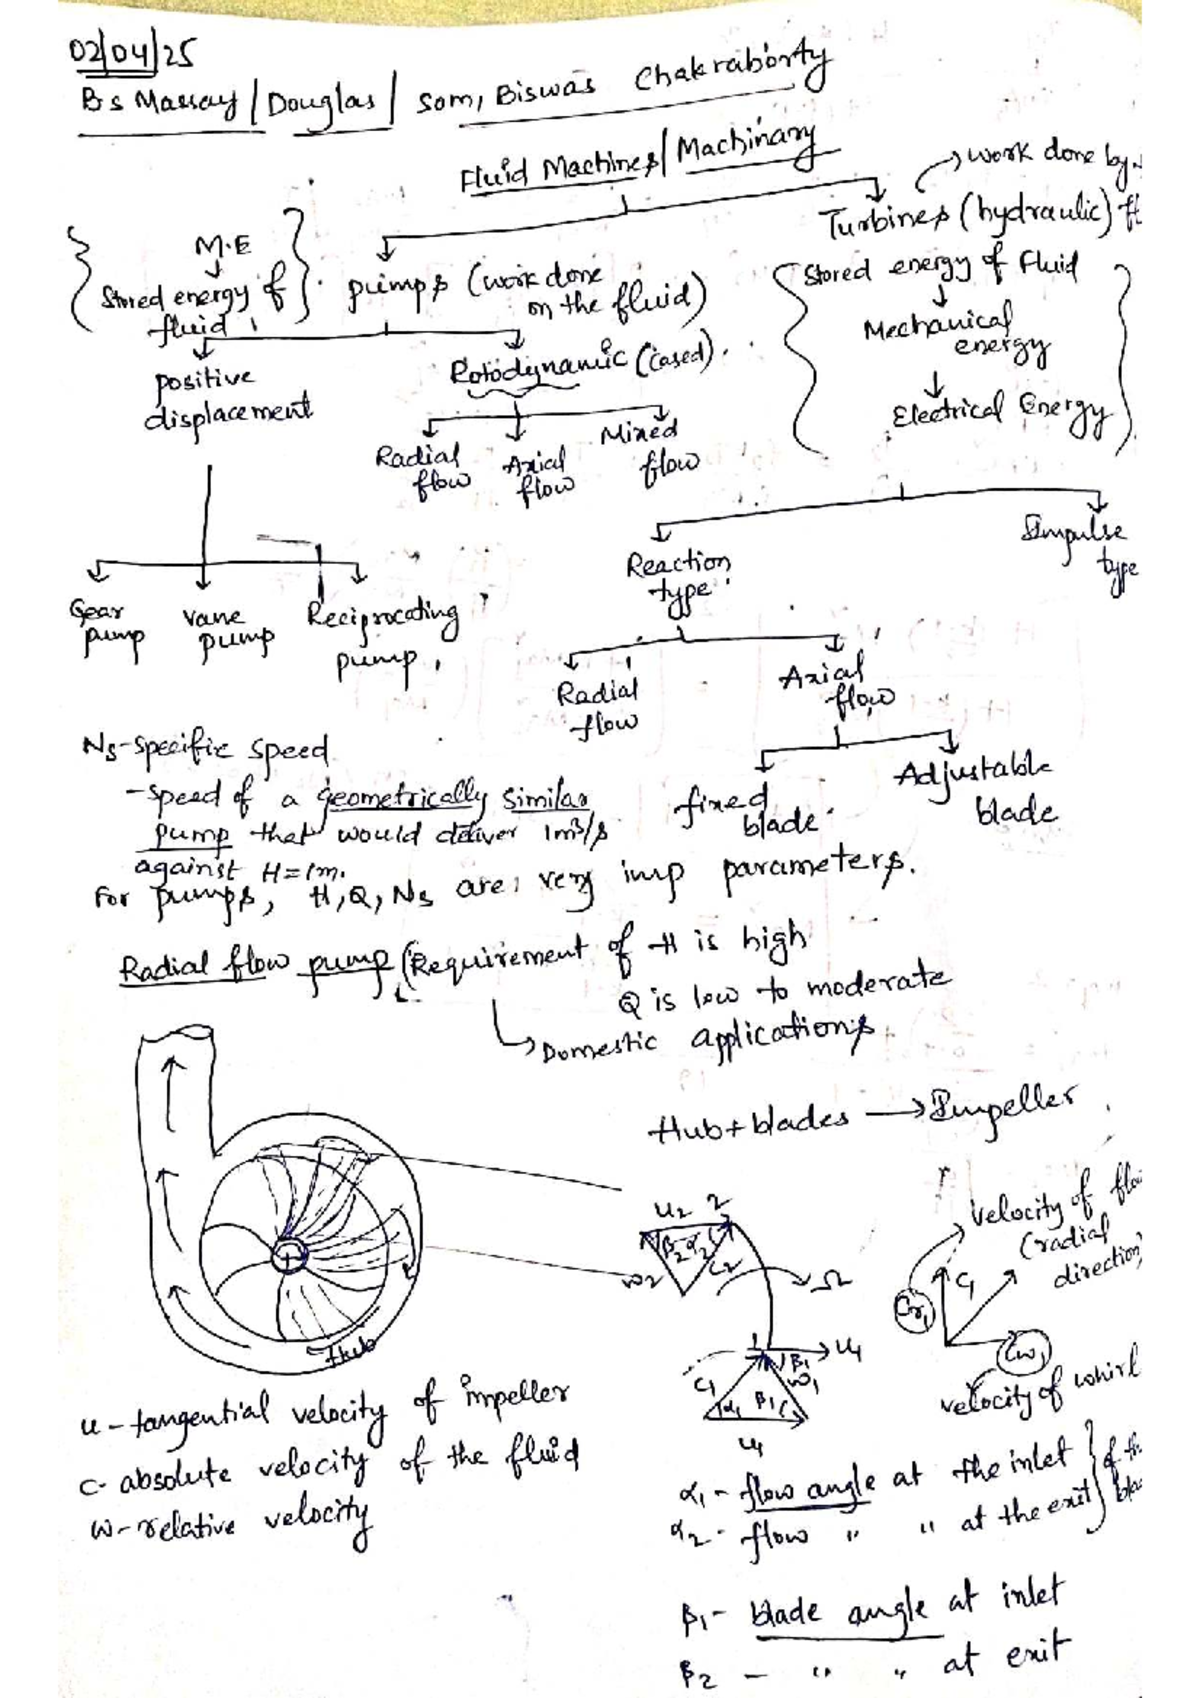 02/04/25
BS Massay / Douglas / Som, Biswas Chakraborty
Fluid Machines / Machinary
work done by
Turbines (hydraulic)
M.E
Stored energy of fluid
pumps (work done on the fluid)
Stored energy of fluid
Mechanical energy
Electrical Energy
positive displacement
Rotodynamic (cased)
Radial flow
Axial flow
Mixed flow
Reaction type
Impulse type
Gear pump
vane pump
Reciprocating pump
Radial flow
Axial flow
fixed blade
Adjustable blade
Ns-Specific speed
-Speed of a geometrically similar
pump that would deliver 1m³/s
against H=1m.
For pumps, H, Q, Ns are very imp parameters.
Radial flow pump (Requirement of H is high
Q is low to moderate
Domestic applications
Hub+blades → Impeller
u2 2
β2 α2
w2 c2
Ω
1 u1
β1
c1 w1
α1 β1
u1
r
velocity of
(radial direction)
Cr1 C1
Cw1
velocity of whirl
Hub
u - tangential velocity of impeller
c- absolute velocity of the fluid
w- relative velocity
α1 - flow angle at the inlet
α2 - flow " " at the exit
β1- blade angle at inlet
β2 - " " at exit